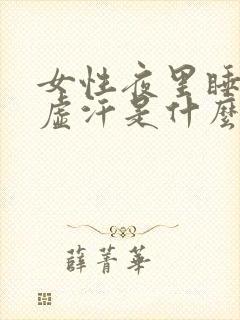 女性夜里睡
虚汗是什麼
薛菁華